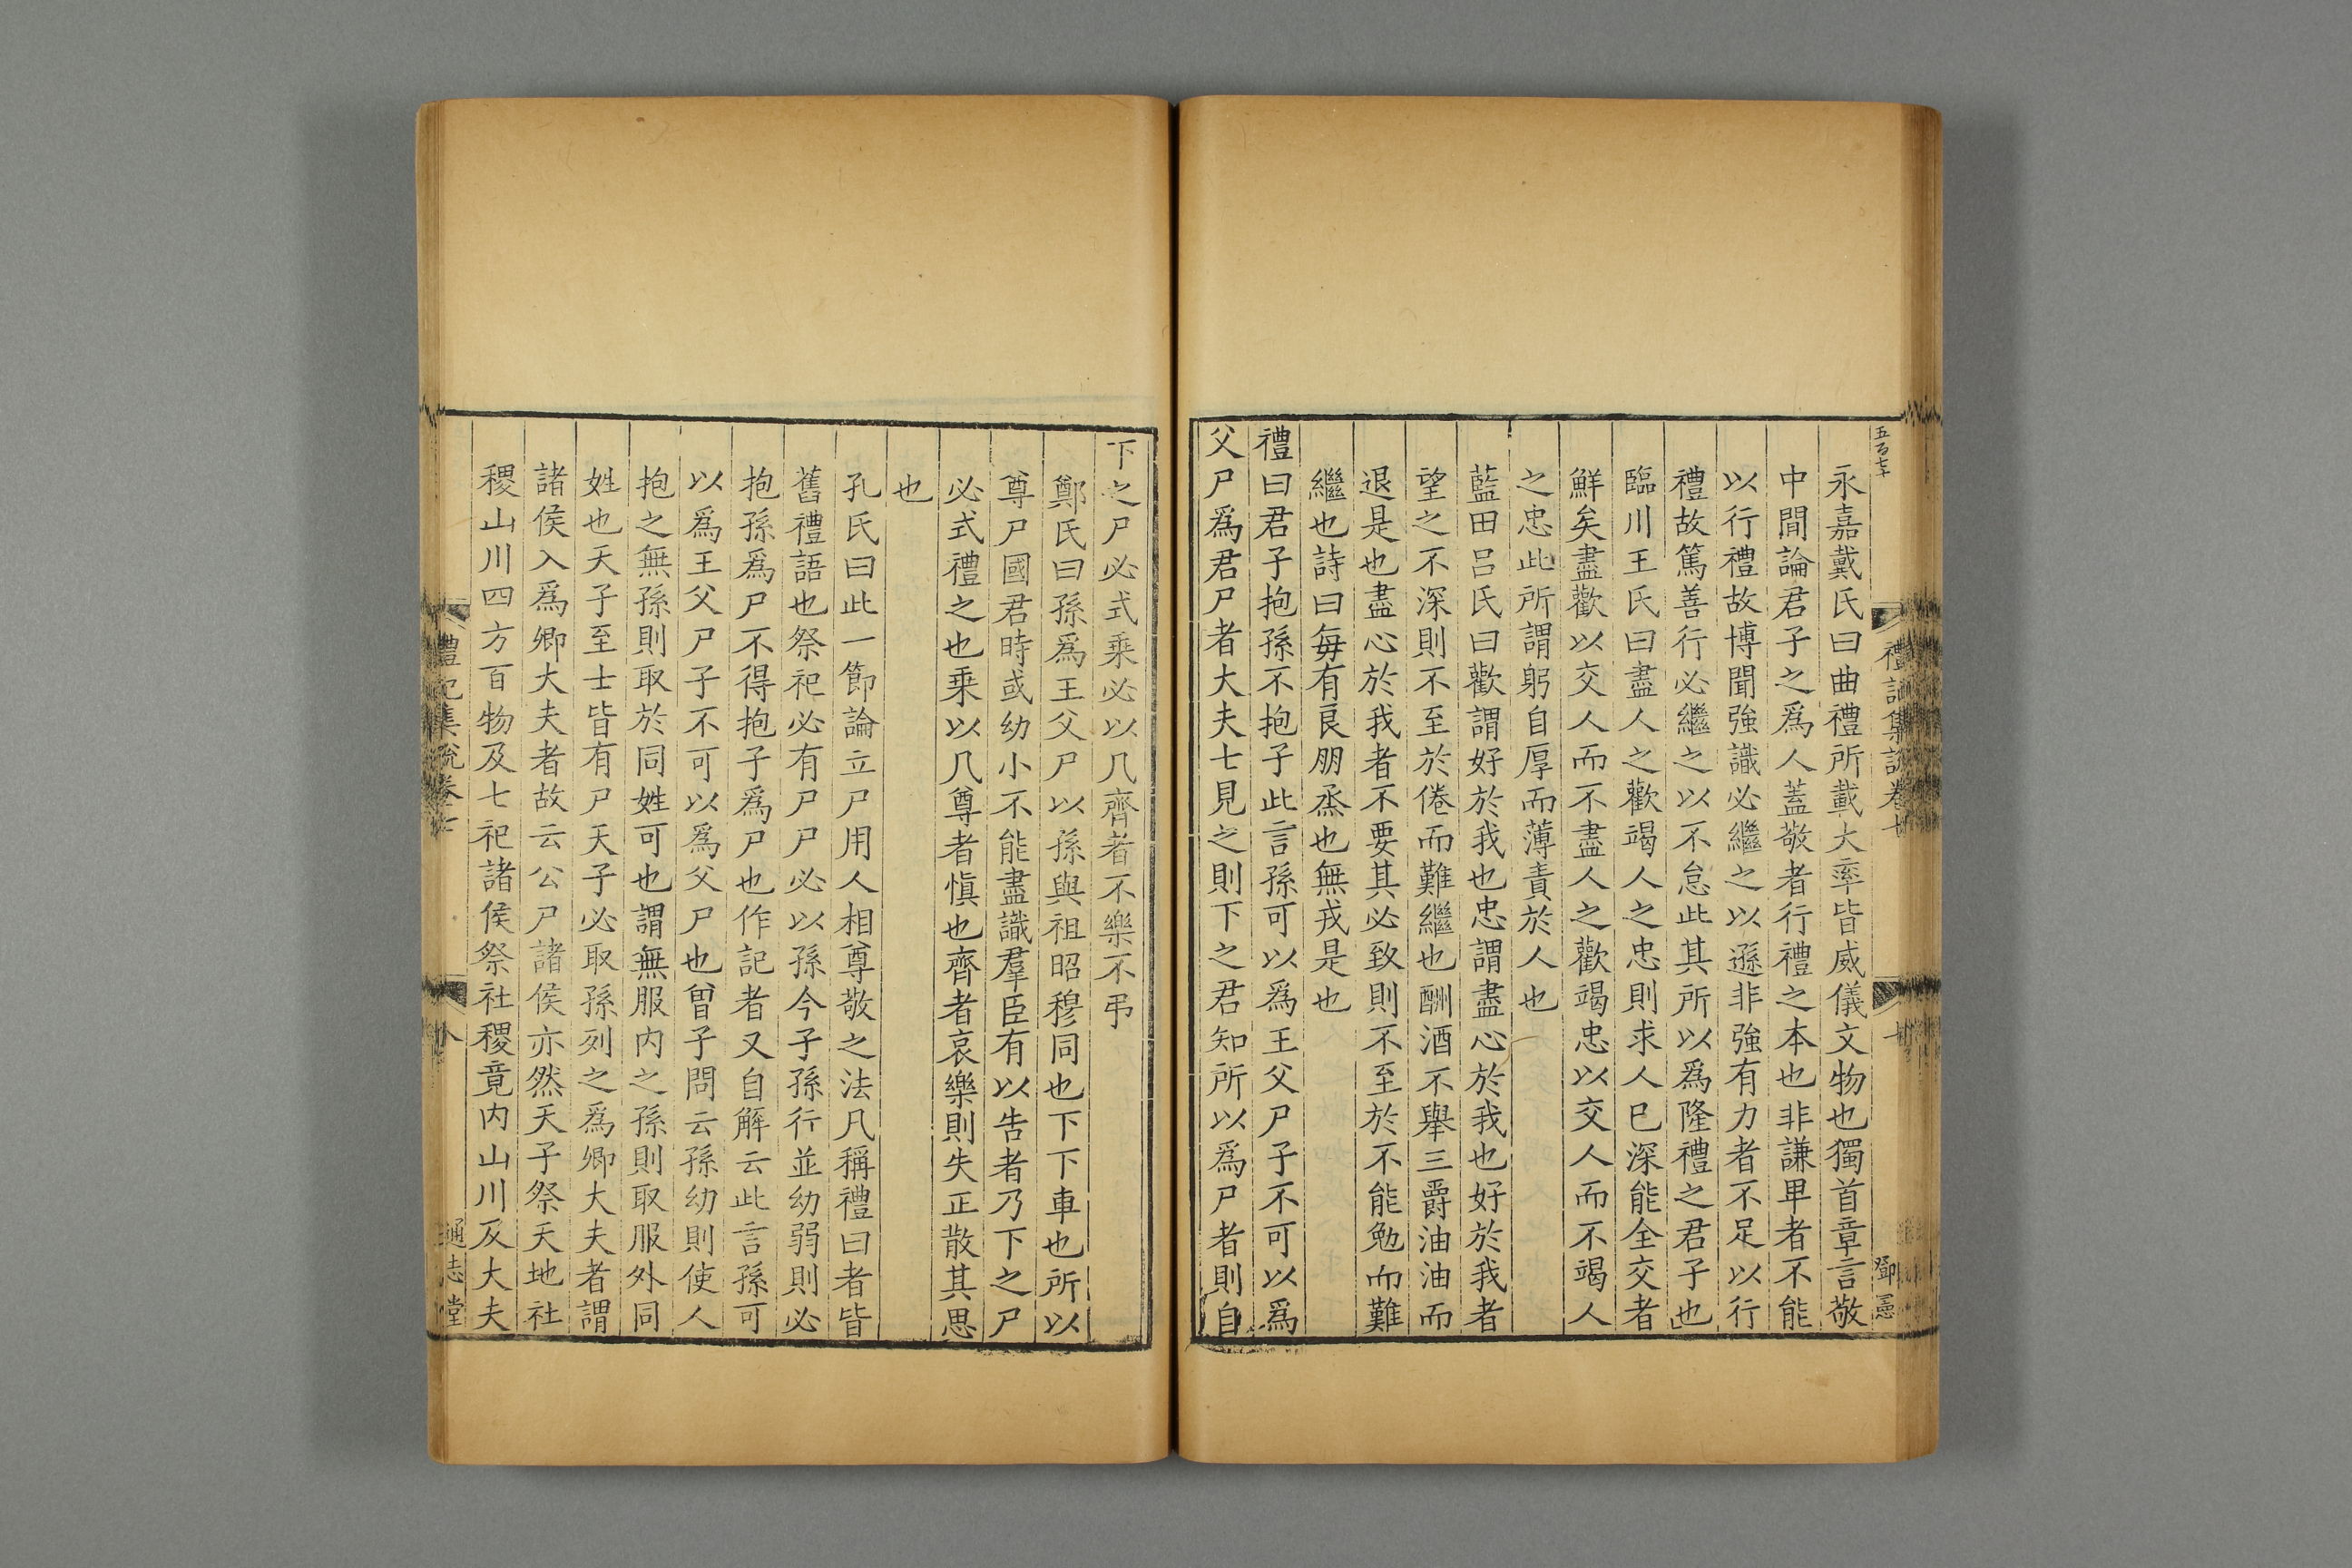 五百七十
永嘉戴氏曰曲禮所載大率皆威儀文物也獨首章言敬
中間論君子之爲人蓋敬者行禮之本也非謙卑者不能
以行禮故博聞強識必繼之以遜非強有力者不足以行
禮故篤善行必繼之以不怠此其所以爲隆禮之君子也
臨川王氏曰盡人之歡竭人之忠則求人已深能全交者
鮮矣盡歡以交人而不盡人之歡竭忠以交人而不竭人
之忠此所謂躬自厚而薄責於人也
藍田呂氏曰歡謂好於我也忠謂盡心於我也好於我者
望之不深則不至於倦而難繼也酬酒不舉三爵油油而
退是也盡心於我者不要其必致則不至於不能勉而難
繼也詩曰每有良朋烝也無戎是也
禮曰君子抱孫不抱子此言孫可以爲王父尸子不可以爲
父尸爲君尸者大夫士見之則下之君知所以爲尸者則自
下之尸必式乘必以几齊者不樂不弔
鄭氏曰孫爲王父尸以孫與祖昭穆同也下下車也所以
尊尸國君時或幼小不能盡識羣臣有以告者乃下之尸
必式禮之也乘以几尊者愼也齊者哀樂則失正散其思
也
孔氏曰此一節論立尸用人相尊敬之法凡稱禮曰者皆
舊禮語也祭祀必有尸尸必以孫今子孫行並幼弱則必
抱孫爲尸不得抱子爲尸也作記者又自解云此言孫可
以爲王父尸子不可以爲父尸也曾子問云孫幼則使人
抱之無孫則取於同姓可也謂無服內之孫則取服外同
姓也天子至士皆有尸天子必取孫列之爲卿大夫者謂
諸侯入爲卿大夫者故云公尸諸侯亦然天子祭天地社
稷山川四方百物及七祀諸侯祭社稷竟內山川及大夫
禮記集說卷七
八
通志堂